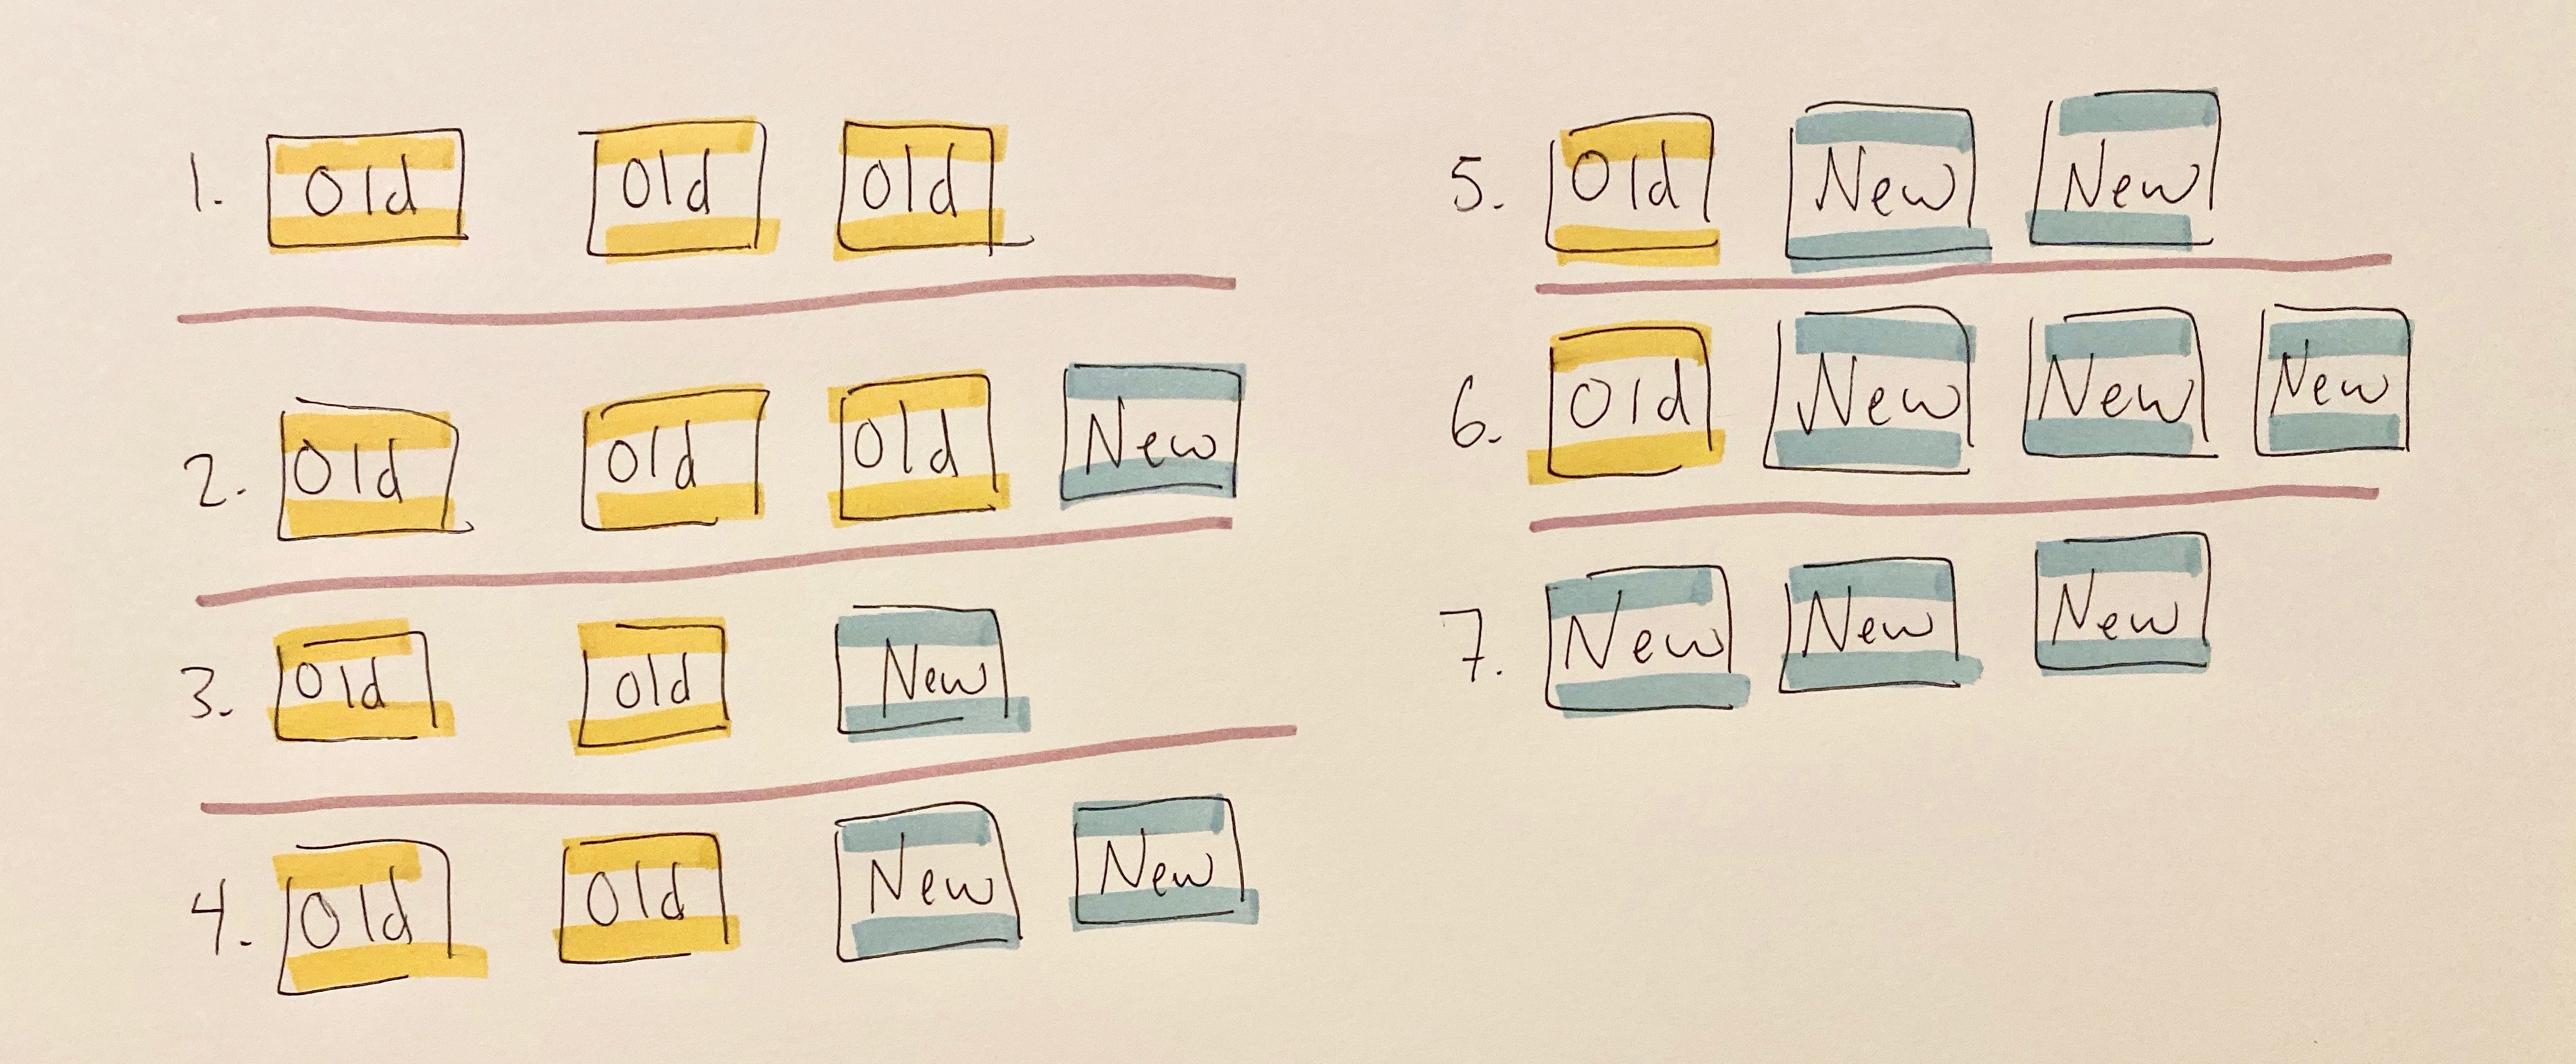 1. Old Old Old
2. Old Old Old New
3. Old Old New
4. Old Old New New
5. Old New New
6. Old New New New
7. New New New